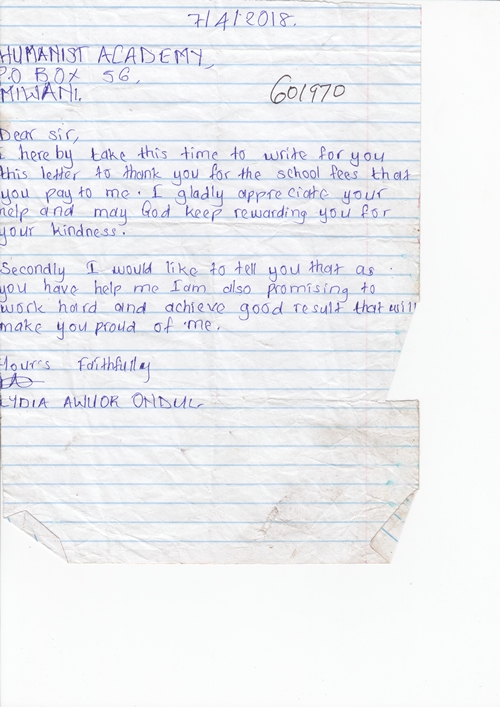 7/4/2018.
HUMANIST ACADEMY,
P.O BOX 56,
MIWANI.
601970
Dear sir,
I here by take this time to write for you
this letter to thank you for the school fees that
you pay to me. I gladly appreciate your
help and may God keep rewarding you for
your kindness.
Secondly I would like to tell you that as
you have help me I am also promising to
work hard and achieve good result that will
make you proud of me.
Yours Faithfully
LYDIA AWUOR